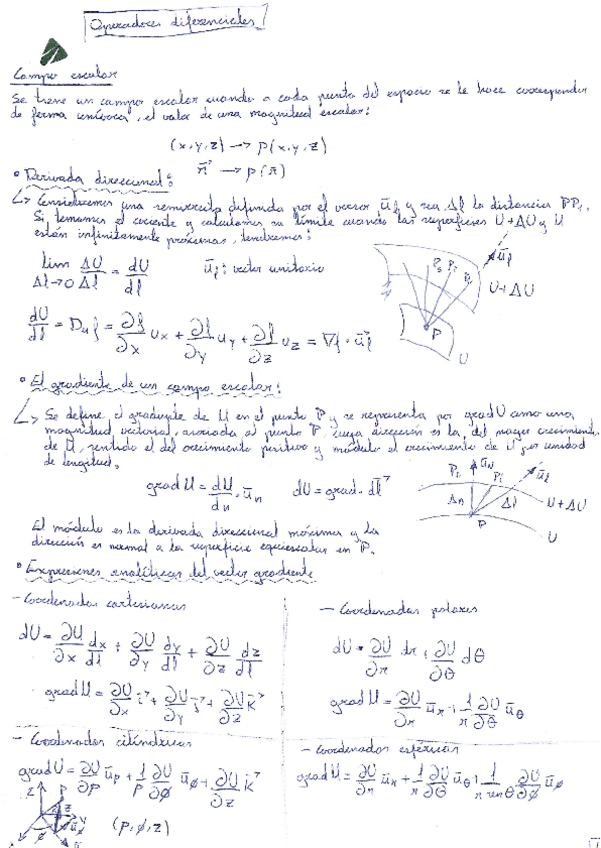 Operadores diferenciales
Campo escalar
Se tiene un campo escalar cuando a cada punto del espacio se le hace corresponder
de forma unívoca, el valor de una magnitud escalar:
(x,y,z) → p(x,y,z)
r⃗ → p(r)
• Derivada direccional:
↳ Consideremos una semirrecta definida por el vector ūl y sea Δl la distancia PP1.
Si tomamos el cociente y calculamos su límite cuando las superficies U+ΔU y U
están infinitamente próximas, tendremos:
lim Δl→0 ΔU/Δl = dU/dl   ūl: vector unitario
dU/dl = Du f = ∂f/∂x ux + ∂f/∂y uy + ∂f/∂z uz = ∇f · u⃗l
P3 P2 P1 ūl
U+ΔU
P
U
• El gradiente de un campo escalar:
↳ Se define el gradiente de U en el punto P y se representa por grad U como una
magnitud vectorial, asociada al punto P, cuya dirección es la del mayor crecimiento
de U, sentido el del crecimiento positivo y módulo el crecimiento de U por unidad
de longitud.
grad U = dU/dn · ūn   dU = grad · dl⃗
ūn P1 ūl
Δn Δl U+ΔU
P
U
El módulo es la derivada direccional máxima y la
dirección es normal a la superficie equiescalar en P.
• Expresiones analíticas del vector gradiente
- Coordenadas cartesianas
dU = ∂U/∂x dx/dl + ∂U/∂y dy/dl + ∂U/∂z dz/dl
grad U = ∂U/∂x i⃗ + ∂U/∂y j⃗ + ∂U/∂z k⃗
- Coordenadas polares
dU = ∂U/∂r dr + ∂U/∂θ dθ
grad U = ∂U/∂r ūr + 1/r ∂U/∂θ ūθ
- Coordenadas cilíndricas
grad U = ∂U/∂ρ ūρ + 1/ρ ∂U/∂ϕ ūϕ + ∂U/∂z k⃗
(ρ,ϕ,z)
- Coordenadas esféricas
grad U = ∂U/∂r ūr + 1/r ∂U/∂θ ūθ + 1/(r sen θ) ∂U/∂ϕ ūϕ